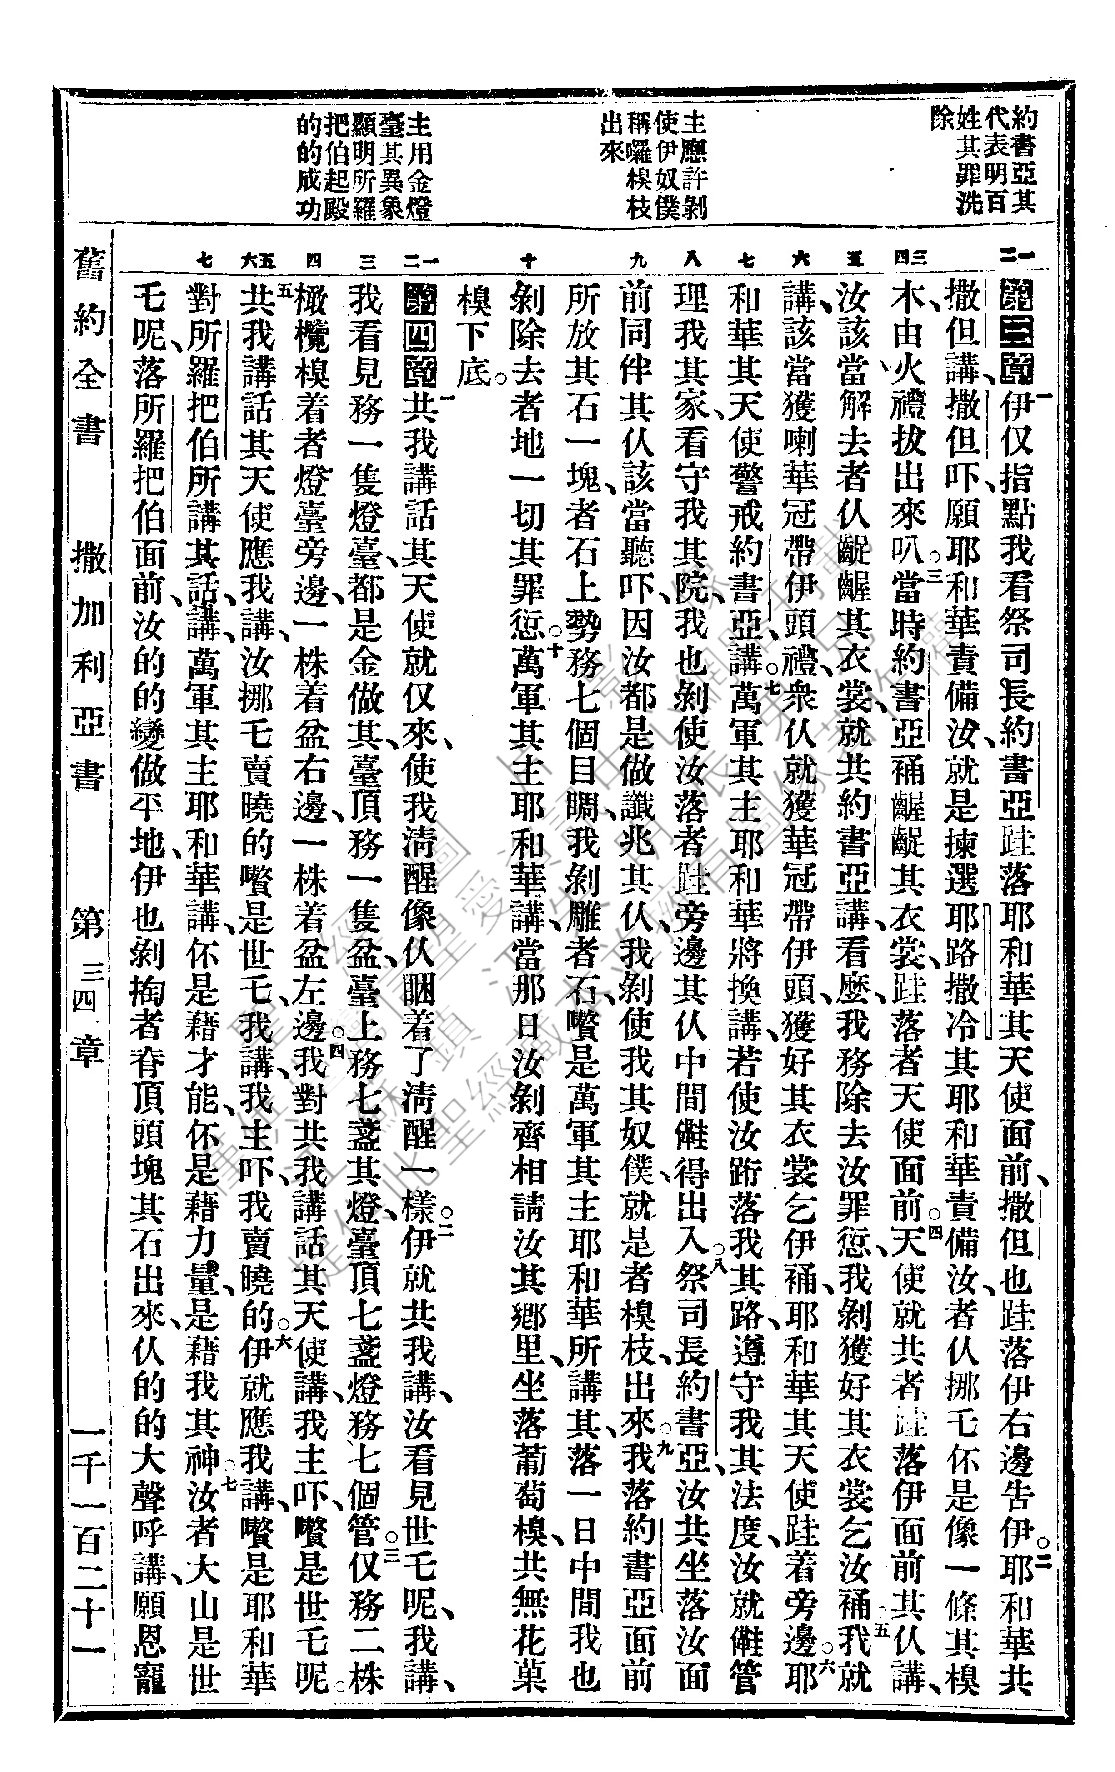 約書亞其
代表明百
姓其罪洗
除
主應許剝
使伊奴僕
稱囉樉枝
出來
主用金燈
臺其異象
顯明所羅
把伯起殿
的的成功
一二
三四
五
六
七
八
九
十
一二
三
四
五六
七
第三章一伊仅指點我看祭司長約書亞跬落耶和華其天使面前、撒但也跬落伊右邊告伊。二耶和華共
撒但講、撒但吓、願耶和華責備汝、就是揀選耶路撒冷其耶和華責備汝、者仈挪乇伓是像一條其樉
木、由火禮拔出來叭。三當時約書亞𧙕齷齪其衣裳、跬落者天使面前。四天使就共者跬落伊面前其仈講、
汝該當解去者仈齷齪其衣裳、就共約書亞講、看麽、我務除去汝罪愆、我剝獲好其衣裳乞汝𧙕。五我就
講、該當獲喇華冠帶伊頭禮、衆仈就獲華冠帶伊頭、獲好其衣裳乞伊𧙕、耶和華其天使跬着旁邊。六耶
和華其天使警戒約書亞講、七萬軍其主耶和華將換講、若使汝跀落我其路、遵守我其法度、汝就㑲管
理我其家、看守我其院、我也剝使汝落者跬旁邊其仈中間㑲得出入。八祭司長約書亞、汝共坐落汝面
前同伴其仈、該當聽吓、因汝都是做讖兆其仈、我剝使我其奴僕、就是者樉枝、出來。九我落約書亞面前
所放其石、一塊者石上勢務七個目睭、我剝雕者石、嚽是萬軍其主耶和華所講其、落一日中間我也
剝除去者地一切其罪愆。十萬軍其主耶和華講、當那日汝剝齊相請汝其鄉里、坐落葡萄樉、共無花菓
樉下底。
第四章一共我講話其天使就仅來、使我淸醒、像仈睏着了淸醒一樣。二伊就共我講、汝看見世乇呢、我講、
我看見務一隻燈臺、都是金做其、臺頂務一隻盆、臺上務七盞其燈、臺頂七盞燈務七個管。三仅務二株
橄欖樉着者燈臺旁邊、一株着盆右邊、一株着盆左邊。四我對共我講話其天使講、我主吓、嚽是世乇呢。
五共我講話其天使應我講、汝挪乇賣曉的嚽是世乇、我講、我主吓、我賣曉的。六伊就應我講、嚽是耶和華
對所羅把伯所講其話、講、萬軍其主耶和華講、伓是藉才能、伓是藉力量、是藉我其神。七汝者大山是世
乇呢、落所羅把伯面前、汝的的變做平地、伊也剝掏者脊頂頭塊其石出來、仈的的大聲呼講、願恩寵
舊約全書　撒加利亞書　第三四章　一千一百二十一